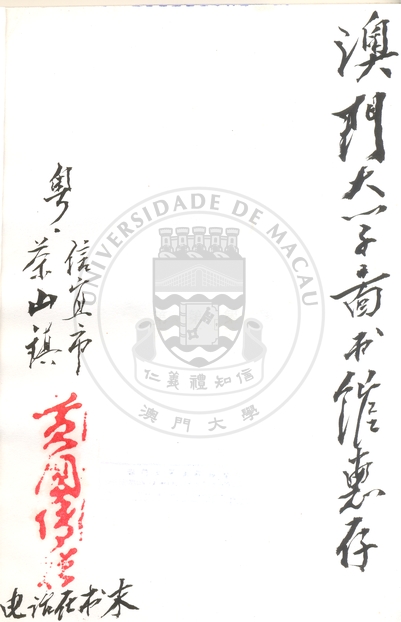 澳門大学图书馆惠存
粤·
信宜市
茶山镇
电话在书末
UNIVERSIDADE DE MACAU
仁義禮知信
澳門大學